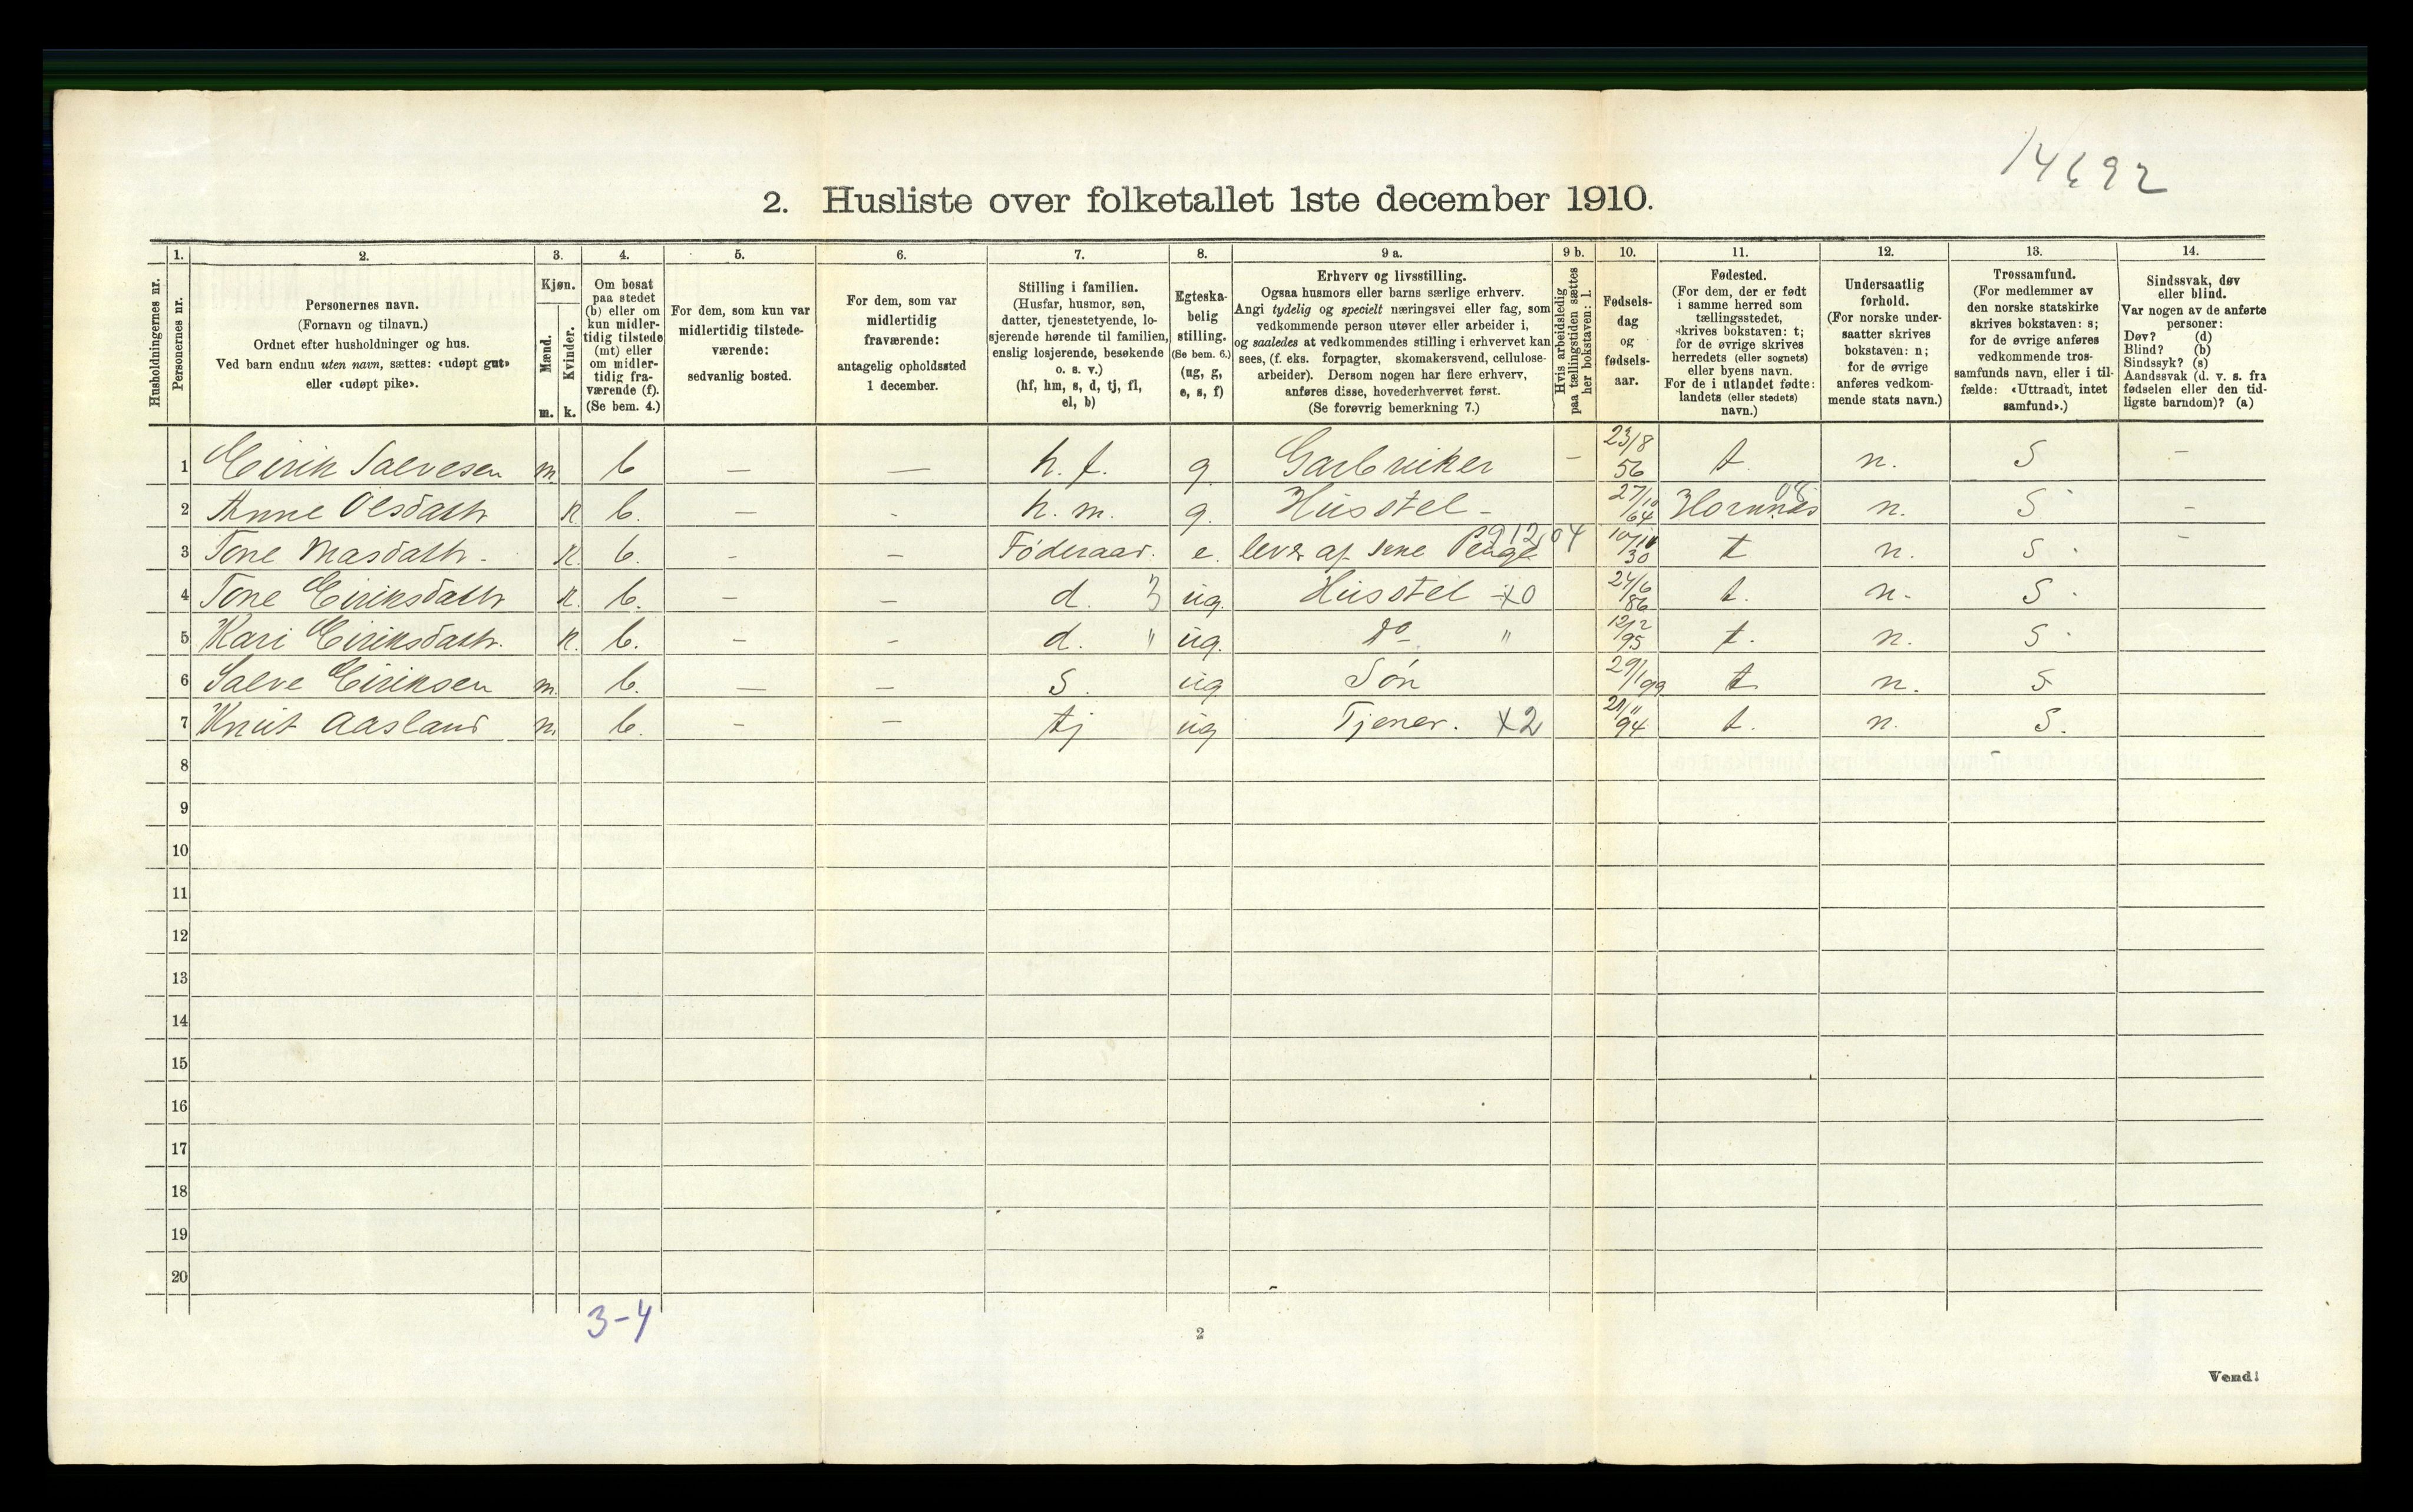 14692
2. Husliste over folketallet 1ste december 1910.
Husholdningernes nr.
1.
Personernes nr.
2.
Personernes navn.
(Fornavn og tilnavn.)
Ordnet efter husholdninger og hus.
Ved barn endnu uten navn, sættes: «udøpt gut»
eller «udøpt pike».
3.
Kjøn.
Mænd.
Kvinder.
m. k.
4.
Om bosat
paa stedet
(b) eller om
kun midler-
tidig tilstede
(mt) eller
om midler-
tidig fra-
værende (f).
(Se bem. 4.)
5.
For dem, som kun var
midlertidig tilstede-
værende:
sedvanlig bosted.
6.
For dem, som var
midlertidig
fraværende:
antagelig opholdssted
1 december.
7.
Stilling i familien.
(Husfar, husmor, søn,
datter, tjenestetyende, lo-
sjerende hørende til familien,
enslig losjerende, besøkende
o. s. v.)
(hf, hm, s, d, tj, fl,
el, b)
8.
Egteska-
belig
stilling.
(Se bem. 6.)
(ug, g,
e, s, f)
9 a.
Erhverv og livsstilling.
Ogsaa husmors eller barns særlige erhverv.
Angi tydelig og specielt næringsvei eller fag, som
vedkommende person utøver eller arbeider i,
og saaledes at vedkommendes stilling i erhvervet kan
sees, (f. eks. forpagter, skomakersvend, cellulose-
arbeider). Dersom nogen har flere erhverv,
anføres disse, hovederhvervet først.
(Se forøvrig bemerkning 7.)
9 b.
Hvis arbeidsledig
paa tællingstiden sættes
her bokstaven: l.
10.
Fødsels-
dag
og
fødsels-
aar.
11.
Fødested.
(For dem, der er født
i samme herred som
tællingsstedet,
skrives bokstaven: t;
for de øvrige skrives
herredets (eller sognets)
eller byens navn.
For de i utlandet fødte:
landets (eller stedets)
navn.)
12.
Undersaatlig
forhold.
(For norske under-
saatter skrives
bokstaven: n;
for de øvrige
anføres vedkom-
mende stats navn.)
13.
Trossamfund.
(For medlemmer av
den norske statskirke
skrives bokstaven: s;
for de øvrige anføres
vedkommende tros-
samfunds navn, eller i til-
fælde: «Uttraadt, intet
samfund».)
14.
Sindssvak, døv
eller blind.
Var nogen av de anførte
personer:
Døv? (d)
Blind? (b)
Sindssyk? (s)
Aandssvak (d. v. s. fra
fødselen eller den tid-
ligste barndom)? (a)
1 Eirik Salvesen m. b — — h. f. g. Garbruker - 23/8 56 t. n. S -
2 Anne Olsdatr k b. — - h. m. g. Husstel - 27/10 64 Hornnes 08 n. S -
3 Tone Masdatr. k. b. - - Føderaad. e. lever af sine Penge 91204 10/11 30 t n. S. -
4 Tone Eiriksdatr k. b. - - d. 3 ug. Husstel -x0 24/6 86 t. n. S.
5 Kari Eiriksdatr. k. b. - - d. " ug. do " 12/2 95 t. n. S.
6 Salve Eiriksen m. b. — - S. ug Søn 29/1 99 t n. S
7 Knut Aasland m. b. - - tj ug Tjener. x2 21/11 94 t. n. S.
8
9
10
11
12
13
14
15
16
17
18
19
20
3-4
2
Vend!